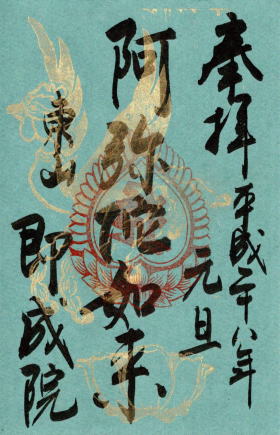 奉拝
平成二十八年
元旦
阿弥陀如来
東山
即成院